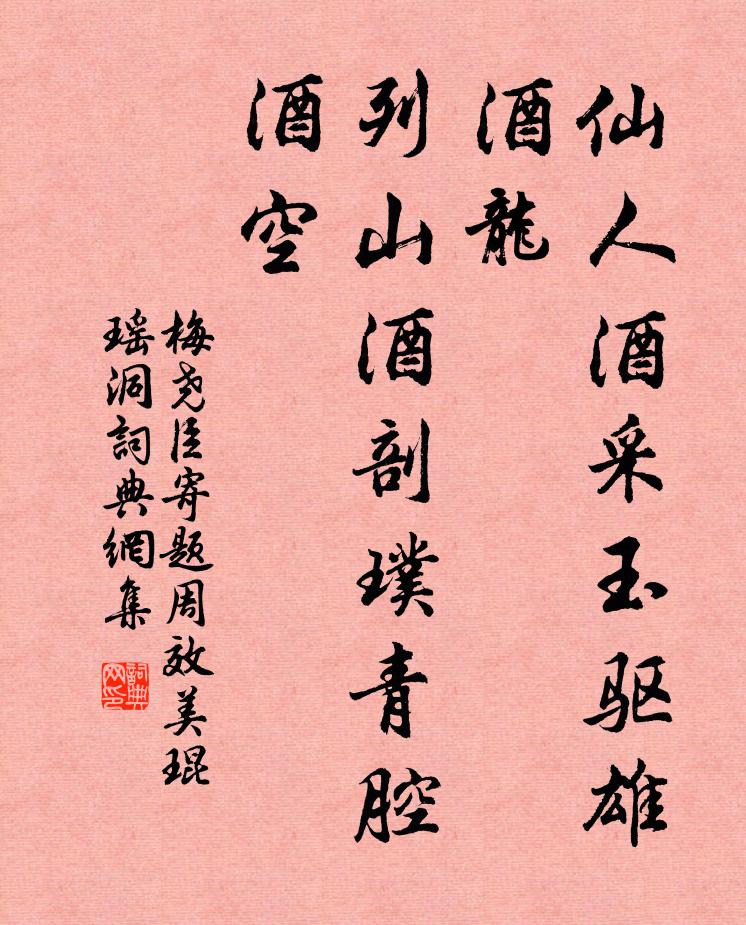 仙人酒采玉驱雄
酒龍
列山酒剖璞青腔
酒空
梅尧臣寄题周效美琨
瑶洞詞典網集
詞典
网印